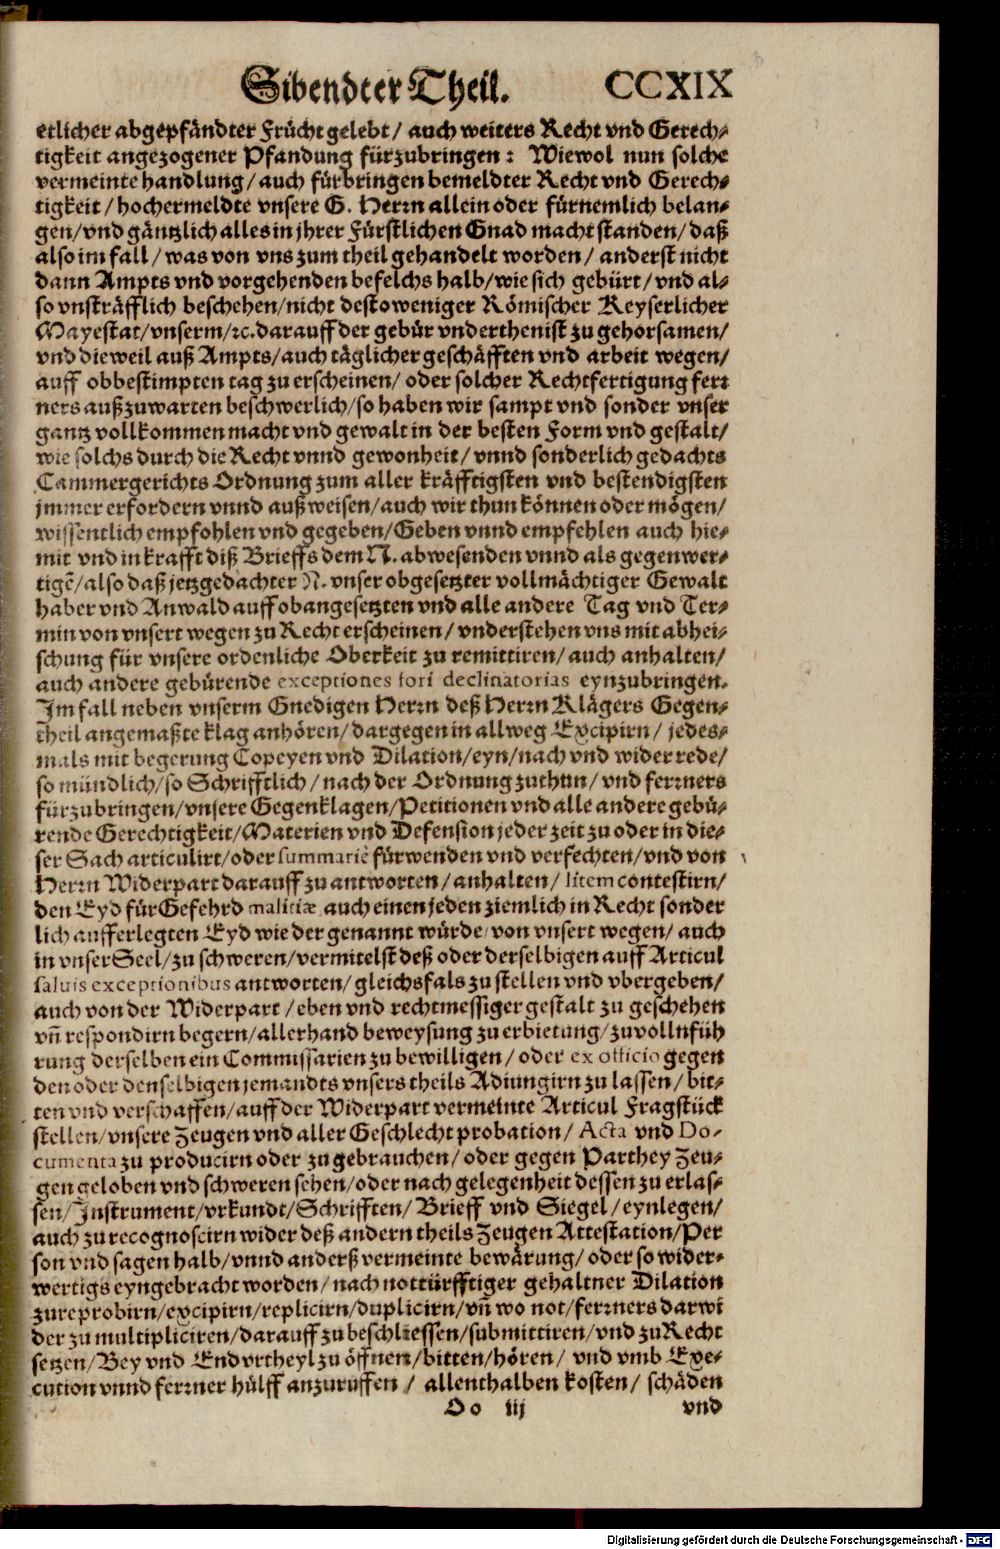 Sibendter Theil. CCXIX
etlicher abgepfändter Frücht gelebt/ auch weiters Recht vnd Gerech-
tigkeit angezogener Pfandung fürzubringen: Wiewol nun solche
vermeinte handlung/ auch fürbringen bemeldter Recht vnd Gerech-
tigkeit/ hochermeldte vnsere G. Herrn allein oder fürnemlich belan-
gen/ vnd gäntzlich alles in jhrer Fürstlichen Gnad macht standen/ daß
also im fall/ was von vns zum theil gehandelt worden/ anderst nicht
dann Ampts vnd vorgehenden befelchs halb/ wie sich gebürt/ vnd al-
so vnsträfflich beschehen/ nicht destoweniger Römischer Keyserlicher
Mayestat/ vnserm/ ꝛc. darauff der gebür vnderthenist zu gehorsamen/
vnd dieweil auß Ampts/ auch täglicher geschäfften vnd arbeit wegen/
auff obbestimpten tag zu erscheinen/ oder solcher Rechtfertigung ferr
ners außzuwarten beschwerlich/ so haben wir sampt vnd sonder vnser
gantz vollkommen macht vnd gewalt in der besten Form vnd gestalt/
wie solchs durch die Recht vnnd gewonheit/ vnnd sonderlich gedachts
Cammergerichts Ordnung zum aller kräfftigsten vnd bestendigsten
jmmer erfordern vnnd außweisen/ auch wir thun können oder mögen/
wissentlich empfohlen vnd gegeben/ Geben vnnd empfehlen auch hie-
mit vnd in krafft diß Brieffs dem N. abwesenden vnnd als gegenwer-
tigē/ also daß jetzgedachter N. vnser obgesetzter vollmächtiger Gewalt
haber vnd Anwald auff obangesetzten vnd alle andere Tag vnd Ter-
min von vnsert wegen zu Recht erscheinen/ vnderstehen vns mit abhei-
schung für vnsere ordenliche Oberkeit zu remittiren/ auch anhalten/
auch andere gebürende exceptiones fori declinatorias eynzubringen.
Im fall neben vnserm Gnedigen Herrn deß Herrn Klägers Gegen-
theil angemaßte klag anhören/ dargegen in allweg Excipirn/ jedes-
mals mit begerung Copeyen vnd Dilation/ eyn/ nach vnd widerrede/
so mündlich/ so Schrifftlich/ nach der Ordnung zuthun/ vnd ferrners
fürzubringen/ vnsere Gegenklagen/ Petitionen vnd alle andere gebü-
rende Gerechtigkeit/ Materien vnd Defension jeder zeit zu oder in die-
ser Sach articulirt/ oder summariè fürwenden vnd verfechten/ vnd von
Herrn Widerpart darauff zu antworten/ anhalten/ litem contestirn/
den Eyd für Gefehrd maliciæ, auch einen jeden ziemlich in Recht sonder
lich aufferlegten Eyd wie der genannt würde/ von vnsert wegen/ auch
in vnser Seel/ zu schweren/ vermitelst deß oder derselbigen auff Articul
saluis exceptionibus antworten/ gleichsfals zu stellen vnd vbergeben/
auch von der Widerpart/ eben vnd rechtmessiger gestalt zu geschehen
vñ respondirn begern/ allerhand beweysung zu erbietung/ zu vollnfüh
rung derselben ein Commissarien zu bewilligen/ oder ex officio gegen
den oder denselbigen jemandts vnsers theils Adiungirn zu lassen/ bit-
ten vnd verschaffen/ auff der Widerpart vermeinte Articul Fragstück
stellen/ vnsere Zeugen vnd aller Geschlecht probation/ Acta vnd Do-
cumenta zu producirn oder zu gebrauchen/ oder gegen Parthey Zeu-
gen geloben vnd schweren sehen/ oder nach gelegenheit dessen zu erlas-
sen/ Instrument/ vrkundt/ Schrifften/ Brieff vnd Siegel/ eynlegen/
auch zu recognoscirn wider deß andern theils Zeugen Attestation/ Per
son vnd sagen halb/ vnnd anderß vermeinte bewärung/ oder so wider-
wertigs eyngebracht worden/ nach nottürfftiger gehaltner Dilation
zureprobirn/ excipirn/ replicirn/ duplicirn/ vñ wo not/ ferrners darwi
der zu multipliciren/ darauff zu beschliessen/ submittiren/ vnd zu Recht
setzen/ Bey vnd Endvrtheyl zu öffnen/ bitten/ hören/ vnd vmb Exe-
cution vnnd ferrner hülff anzuruffen/ allenthalben kosten/ schäden
Oo iij vnd
Digitalisierung gefördert durch die Deutsche Forschungsgemeinschaft - DFG